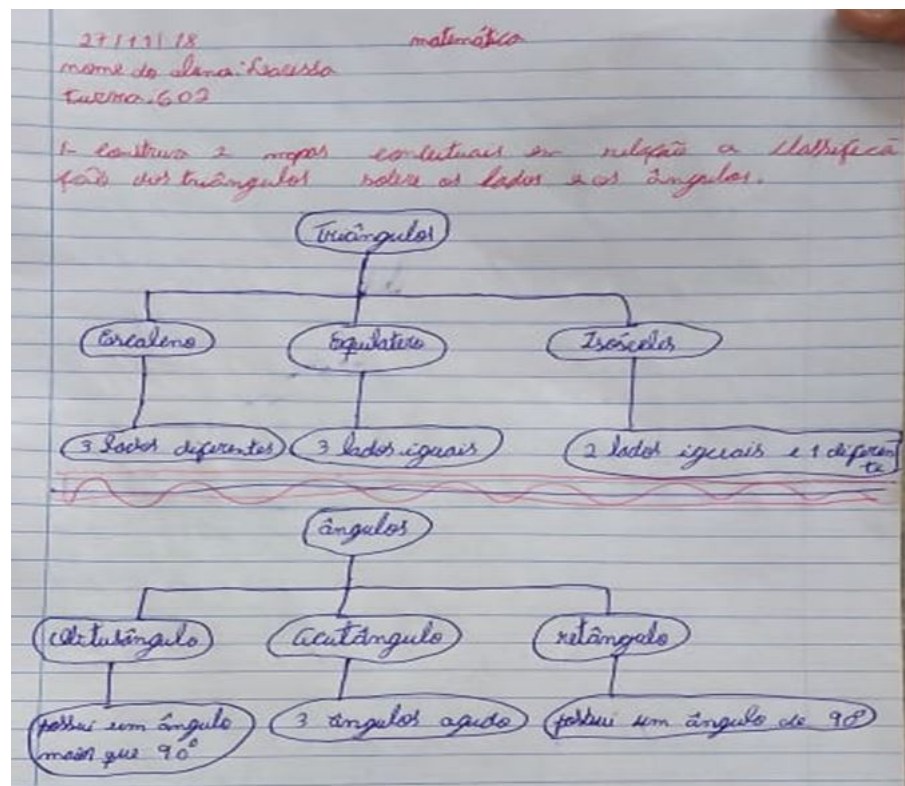 27/11/18 matemática
nome do aluna:
turma: 602
1- Construa 2 mapas conceituais em relação a classificã
ção dos triângulos sobre os lados e os ângulos.
Triângulos
Escaleno Equilatero Isósceles
3 lados diferentes 3 lados iguais 2 lados iguais e 1 diferen
te
ângulos
Obitusângulo acutângulo retângulo
possui um ângulo 3 ângulos agudo possui um ângulo de 90º
maior que 90º